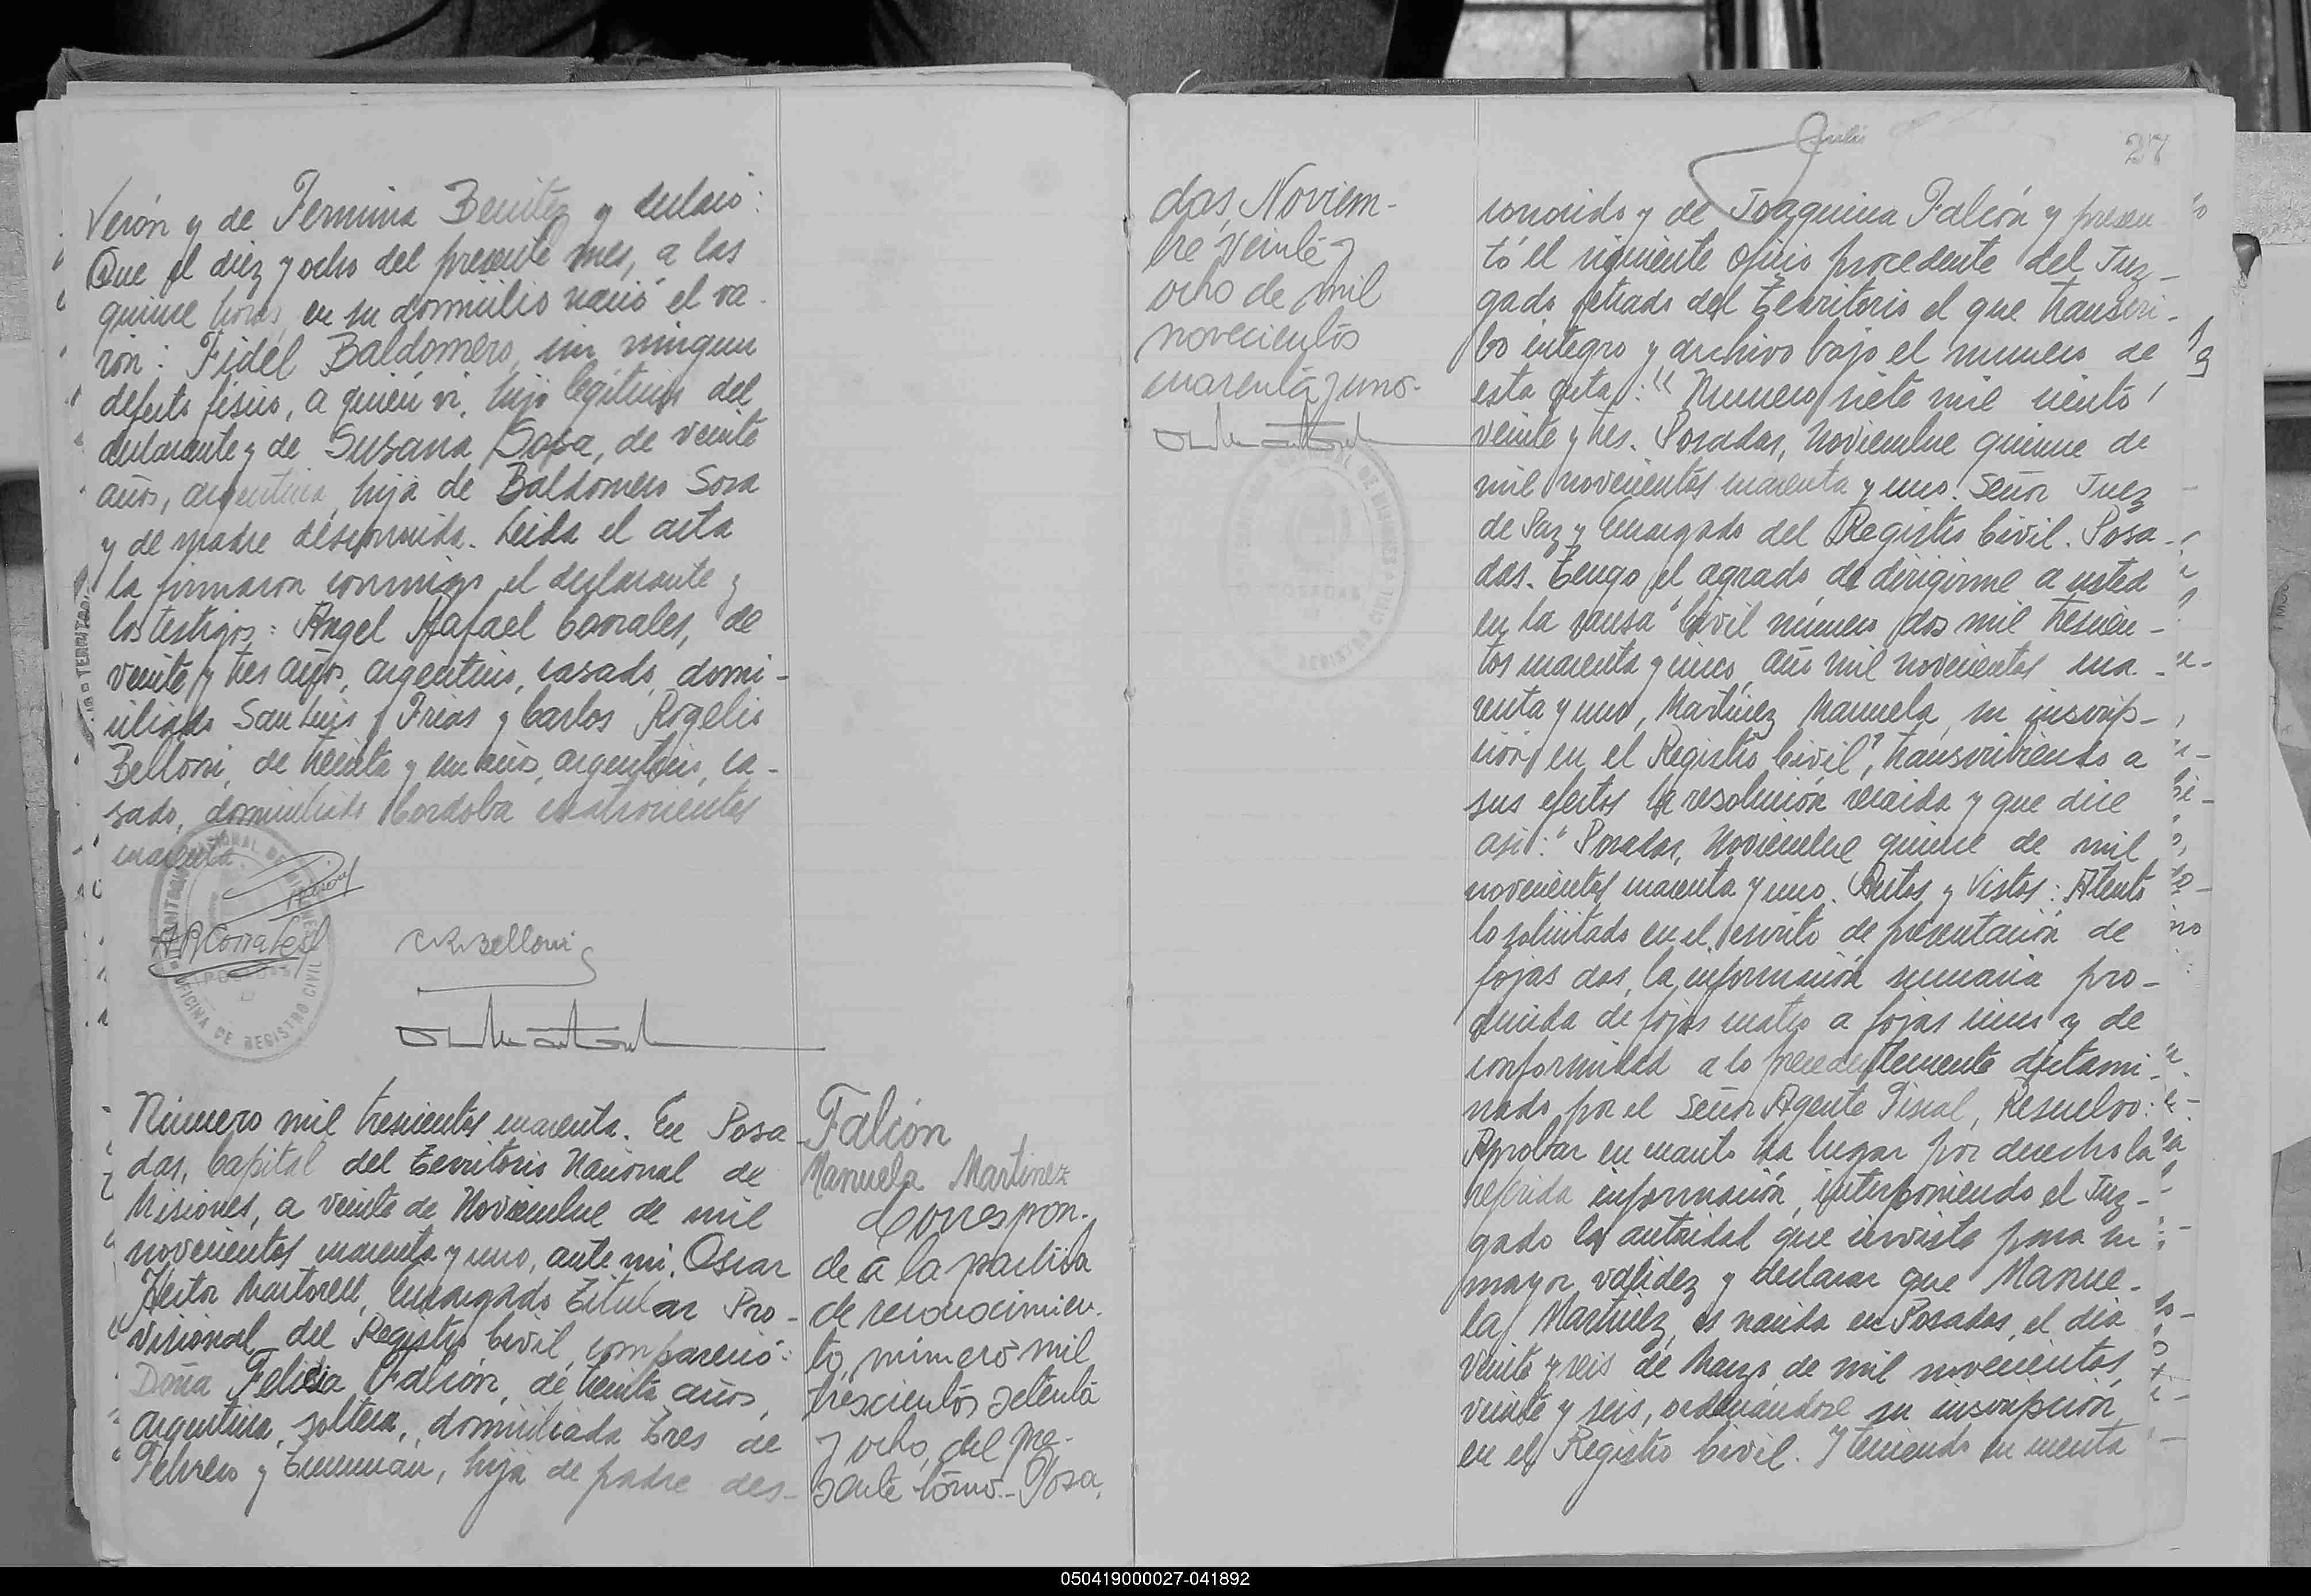 Verón y de Fermina Benitez y declaró:
Que el diez y ocho del presente mes, a las
quince horas, en su domicilio nació el va-
rón: Fidel Baldomero, sin ningun
defecto fisico, a quién vi, hijo legitimo del
declarante y de Susana Sosa, de veinte
años, argentina, hija de Baldomero Sosa
y de madre desconocida. Leida el acta
la firmaron conmigo el declarante y
los testigos: Angel Rafael Corrales, de
veinte y tres años, argentino, casado, domi-
ciliado San Luis y Frias y Carlos Rogelio
Belloni, de treinta y un años, argentino, ca-
sado, domiciliado Cordoba cuatrocientos
cuarenta
A R Corrales
C. R. Belloni
OFICINA DE REGISTRO CIVIL
POSADAS
Número mil trescientos cuarenta. En Posa-
das, Capital del Territorio Nacional de
Misiones, a veinte de Noviembre de mil
novecientos cuarenta y uno, ante mi, Oscar
Hector Martorell, Encargado Titular Pro-
visional del Registro Civil, compareció:
Doña Felicia Falcón, de treinta años,
argentina, soltera, domiciliada Tres de
Febrero y Tucumán, hija de padre des-
Falcón
Manuela Martinez
Correspon-
de a la partida
de reconocimien-
to número mil
trescientos setenta
y ocho, del pre-
sente tomo.- Posa-
das, Noviem-
bre veinte y
ocho de mil
novecientos
cuarenta y uno.-
POSADAS
REGISTRO CIVIL
27
conocido y de Joaquina Falcón y presen
tó el siguiente oficio procedente del Juz-
gado Letrado del Territorio el que transcri-
bo integro y archivo bajo el numero de
esta acta: "Numero siete mil ciento
veinte y tres. Posadas, Noviembre quince de
mil novecientos cuarenta y uno. Señor Juez
de Paz y Encargado del Registro Civil. Posa-
das. Tengo el agrado de dirigirme a usted
en la causa "Civil número dos mil trescien-
tos cuarenta y cinco, año mil novecientos cua-
renta y uno, Martinez Manuela, su inscrip-
ción en el Registro Civil", transcribiendo a
sus efectos la resolución recaida y que dice
asi: "Posadas, Noviembre quince de mil
novecientos cuarenta y uno. Autos y Vistos: Atento
lo solicitado en el escrito de presentación de
fojas dos, la información sumaria pro-
ducida de fojas cuatro a fojas cinco y de
conformidad a lo precedentemente dictami-
nado por el Señor Agente Fiscal, Resuelvo:
Aprobar en cuanto ha lugar por derecho la
referida información, interponiendo el Juz-
gado la autoridad que inviste para su
mayor validez y declarar que Manue-
la Martinez, es nacida en Posadas, el dia
veinte y seis de Marzo de mil novecientos
veinte y seis, ordenándose su inscripción
en el Registro Civil. Y teniendo en cuenta
050419000027-041892